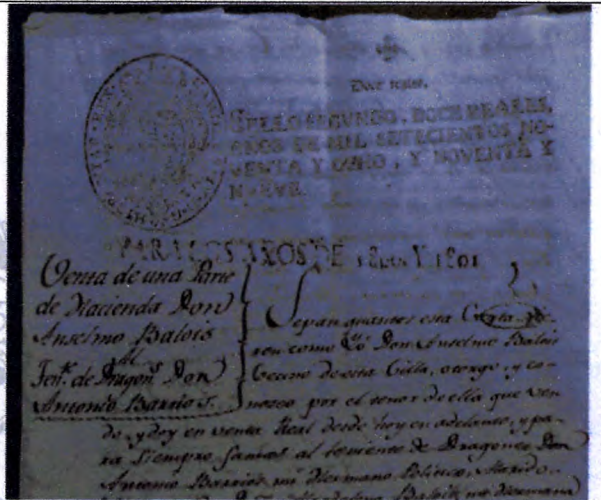 Doce reales.
SELLO SEGVNDO, DOCE REALES,
AÑOS DE MIL SETECIENTOS NO-
VENTA Y OCHO, Y NOVENTA Y
NVEVE.
PARA LOS AÑOS DE 1800 Y 1801
Venta de una Parte
de Hacienda Don
Anselmo Balois
al
Ten.te de Dragon.s Don
Antonio Barrios.
Sepan quantos esta Carta
como Yó Don Anselmo Balois
Vecino de esta Villa, otorgo, y co-
nozco por el tenor de ella que ven
do, y doy en venta Real desde hoy en adelante, y pa-
ra Siempre Jamas al teniente de Dragones Don
Antonio Barrios mi Hermano Politico, Marido